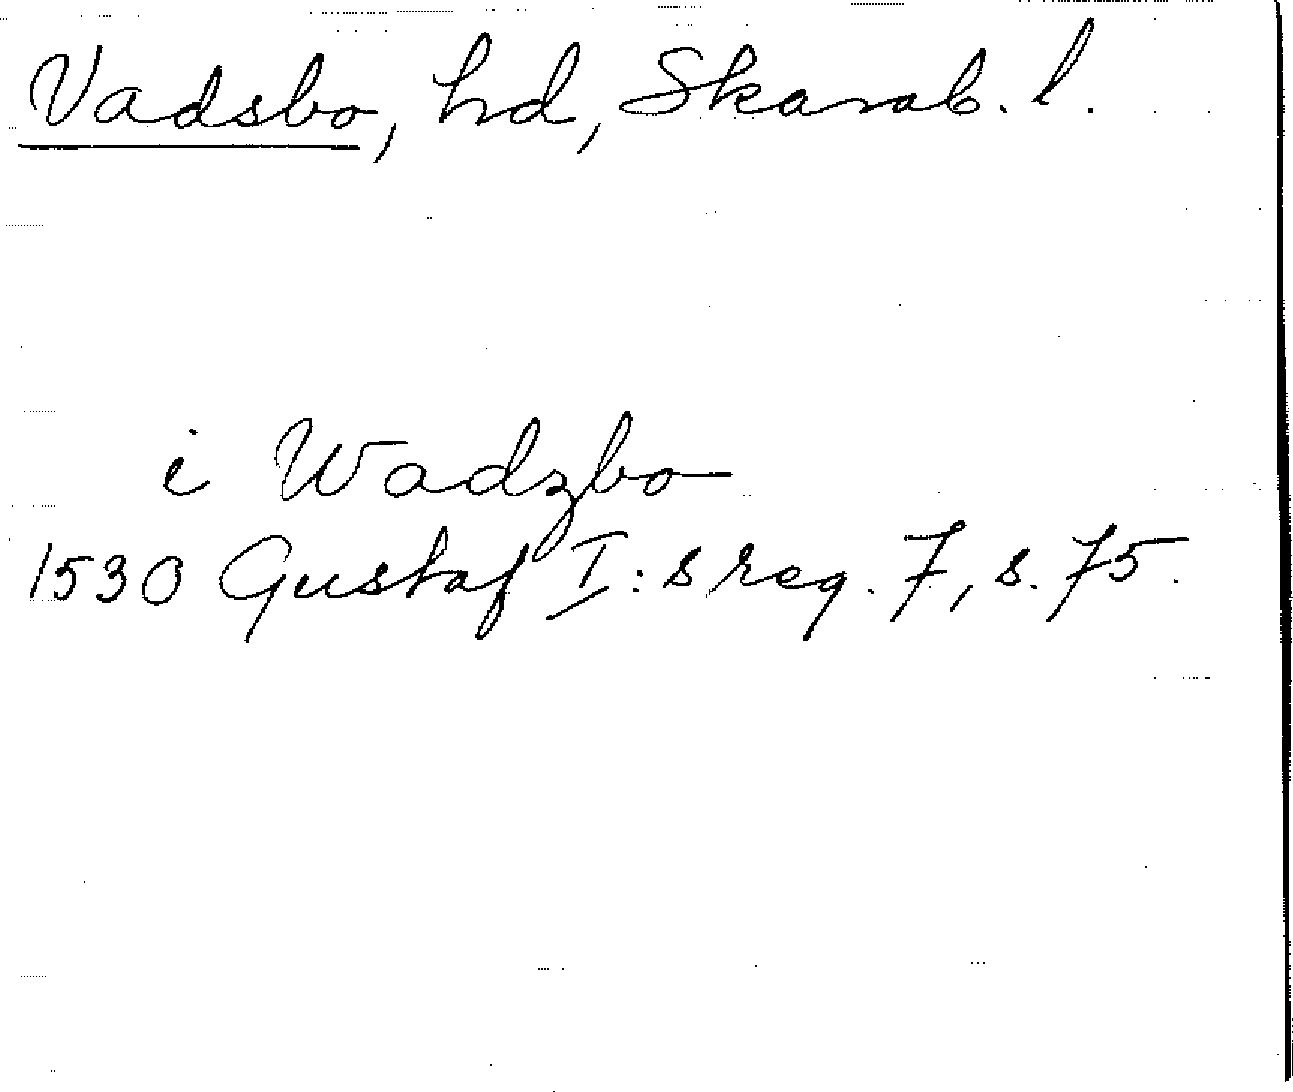 Vadsbo, hd, Skarab. l.
i Wadzbo
1530 Gustaf I:s reg. 7, s. 75.